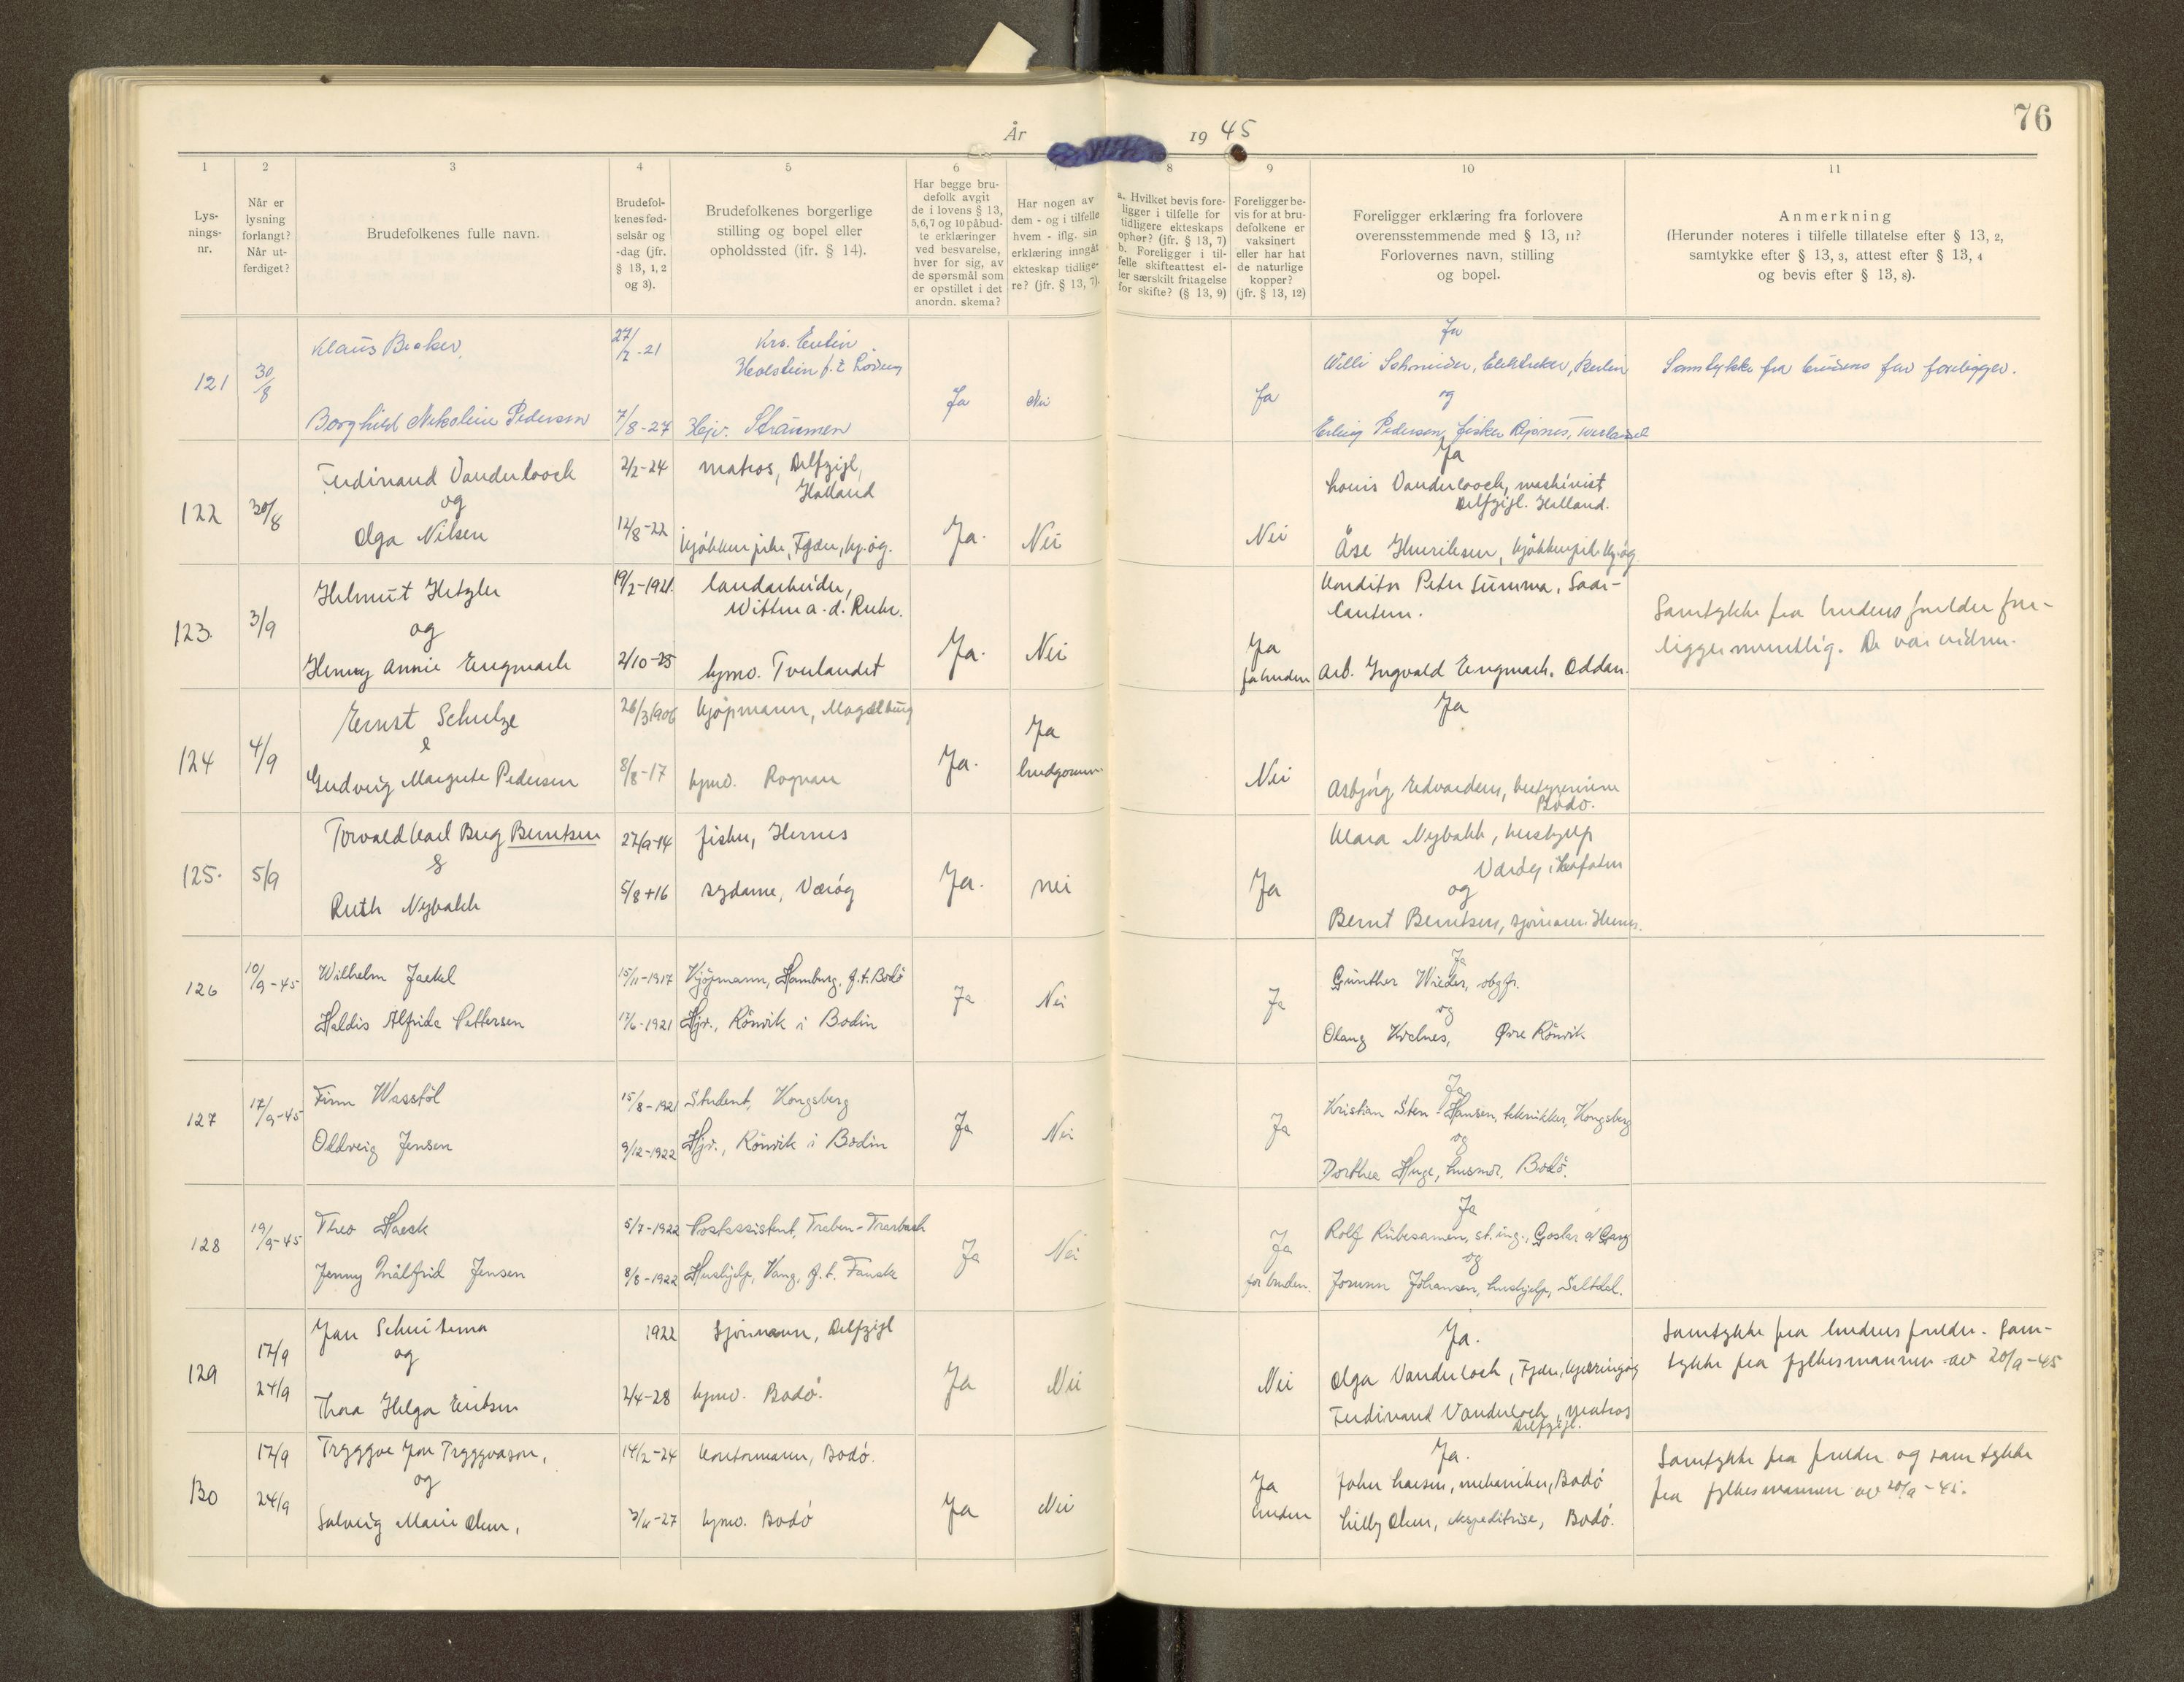 76
År 1945
1 2 3 4 5 6 8 9 10 11
Lys-
nings-
nr.
Når er
lysning
forlangt?
Når ut-
ferdiget?
Brudefolkenes fulle navn.
Brudefol-
kenes fød-
selsår og
-dag (jfr.
§ 13, 1, 2
og 3).
Brudefolkenes borgerlige
stilling og bopel eller
opholdssted (ifr. § 14).
Har begge bru-
defolk avgit
de i lovens § 13,
5,6,7 og 10 påbud-
te erklæringer
ved besvarelse,
hver for sig, av
de spørsmål som
er opstillet i det
anordn. skema?
Har nogen av
dem - og i tilfelle
hvem - iflg. sin
erklæring inngått
ekteskap tidlige-
re? (jfr. § 13, 7).
a. Hvilket bevis fore-
ligger i tilfelle for
tidligere ekteskaps
ophør? (jfr. § 13, 7)
b. Foreligger i til-
felle skifteattest el-
ler særskilt fritagelse
for skifte? (§ 13, 9)
Foreligger be-
vis for at bru-
defolkene er
vaksinert
eller har hat
de naturlige
kopper?
(jfr. § 13, 12)
Foreligger erklæring fra forlovere
overensstemmende med § 13, 11?
Forlovernes navn, stilling
og bopel.
Anmerkning
(Herunder noteres i tilfelle tillatelse efter § 13, 2,
samtykke efter § 13, 3, attest efter § 13, 4
og bevis efter § 13, 8).
121 30/8
Klaus Becker
Borghild Nikoline Pedersen
7/8-27
Hjv. Straumen
Ja Nei Ja
Ja
Willi Schneider, Elektriker, Berlin
og
Erling Pedersen, fisker
Samtykke fra brudens far foreligger.
122 30/8
Ferdinand Vanderloock
og
Olga Nilsen
2/2-24
12/8-22
matros, Delfzijl,
Holland
Ja. Nei Nei
Ja
Louis Vanderloock, maskinist
Delfzijl. Holland.
Åse Henriksen,
123. 3/9
Helmut Hetzler
og
Henny Annie Engmark
19/2-1921.
2/10-25
landarbeider,
Witten a. d. Ruhr.
hjmv. Tverlandet
Ja. Nei
Ja
for bruden
Konditor Peter Summa, Saar-
lautern.
Arb. Ingvald Engmark. Oddan.
Samtykke fra brudens foreldre fore-
ligger muntlig.
124 4/9
Ernst Schulze
&
Gudveig Margrete Pedersen
26/3 1906
8/8-17
Kjøpmann, Magdeburg
hjmv. Rognan
Ja.
Ja
brudgommen
Nei
Ja
Asbjørg Edvardsen, bestyrerinne
Bodø.
125. 5/9
Torvald Karl Berg Berntsen
&
Ruth Nybakk
27/9-14
5/8-16
fisker, Hernes
sydame, Værøy
Ja. nei Ja
Klara Nybakk, hushjelp
Værøy i Lofoten
og
Bernt Berntsen, sjømann. Hernes.
126 10/9-45
Wilhelm Jaekel
Haldis Alfrida Pettersen
15/11-1917
17/6-1921
Kjøpmann, Hamburg, f.t. Bodø
Hjv., Rønvik i Bodin
Ja Nei Ja
Ja
Günther Wieder, obgfr.
og
Olaug Kvalnes, Øvre Rønvik
127 17/9-45
Finn Wasstøl
Oldveig Jensen
15/8-1921
9/12-1922
Student, Kongsberg
Hjv., Rønvik i Bodin
Ja Nei Ja
Ja
Kristian Sten-Hansen, tekniker, Kongsberg
og
Dorthea Huge, husmor, Bodø.
128 19/9-45
Theo Haeck
Jenny Målfrid Jensen
5/7-1922
8/8-1922
Postassistent, Traben-Trarbach
Hushjelp, Vang, f.t. Fauske
Ja Nei
Ja
for bruden.
Ja
Rolf Rübesamen, st.ing., Goslar a/Harz
og
Johansen, hushjelp, Saltdal.
129 17/9
24/9
Jan Schuitema
og
Thora Helga Eriksen
1922
2/4-28
Sjømann, Delfzijl
hjmv. Bodø.
Ja Nei Nei
Ja.
Olga Vanderlock, Fjær, Kjerringøy
Ferdinand Vanderlock, matros
Delfzijl.
Samtykke fra brudens foreldre. Sam-
tykke fra fylkesmannen av 20/9-45
130 17/9
24/9
Tryggve Jon Tryggvason,
og
Solveig Marie Olsen,
14/2-24
Kontormann, Bodø.
hjmv. Bodø
Ja Nei
Ja
bruden
Ja.
John Larsen, mekaniker, Bodø
Lilly Olsen, ekspeditrise, Bodø.
Samtykke fra foreldre og samtykke
fra fylkesmannen av 20/9-45.